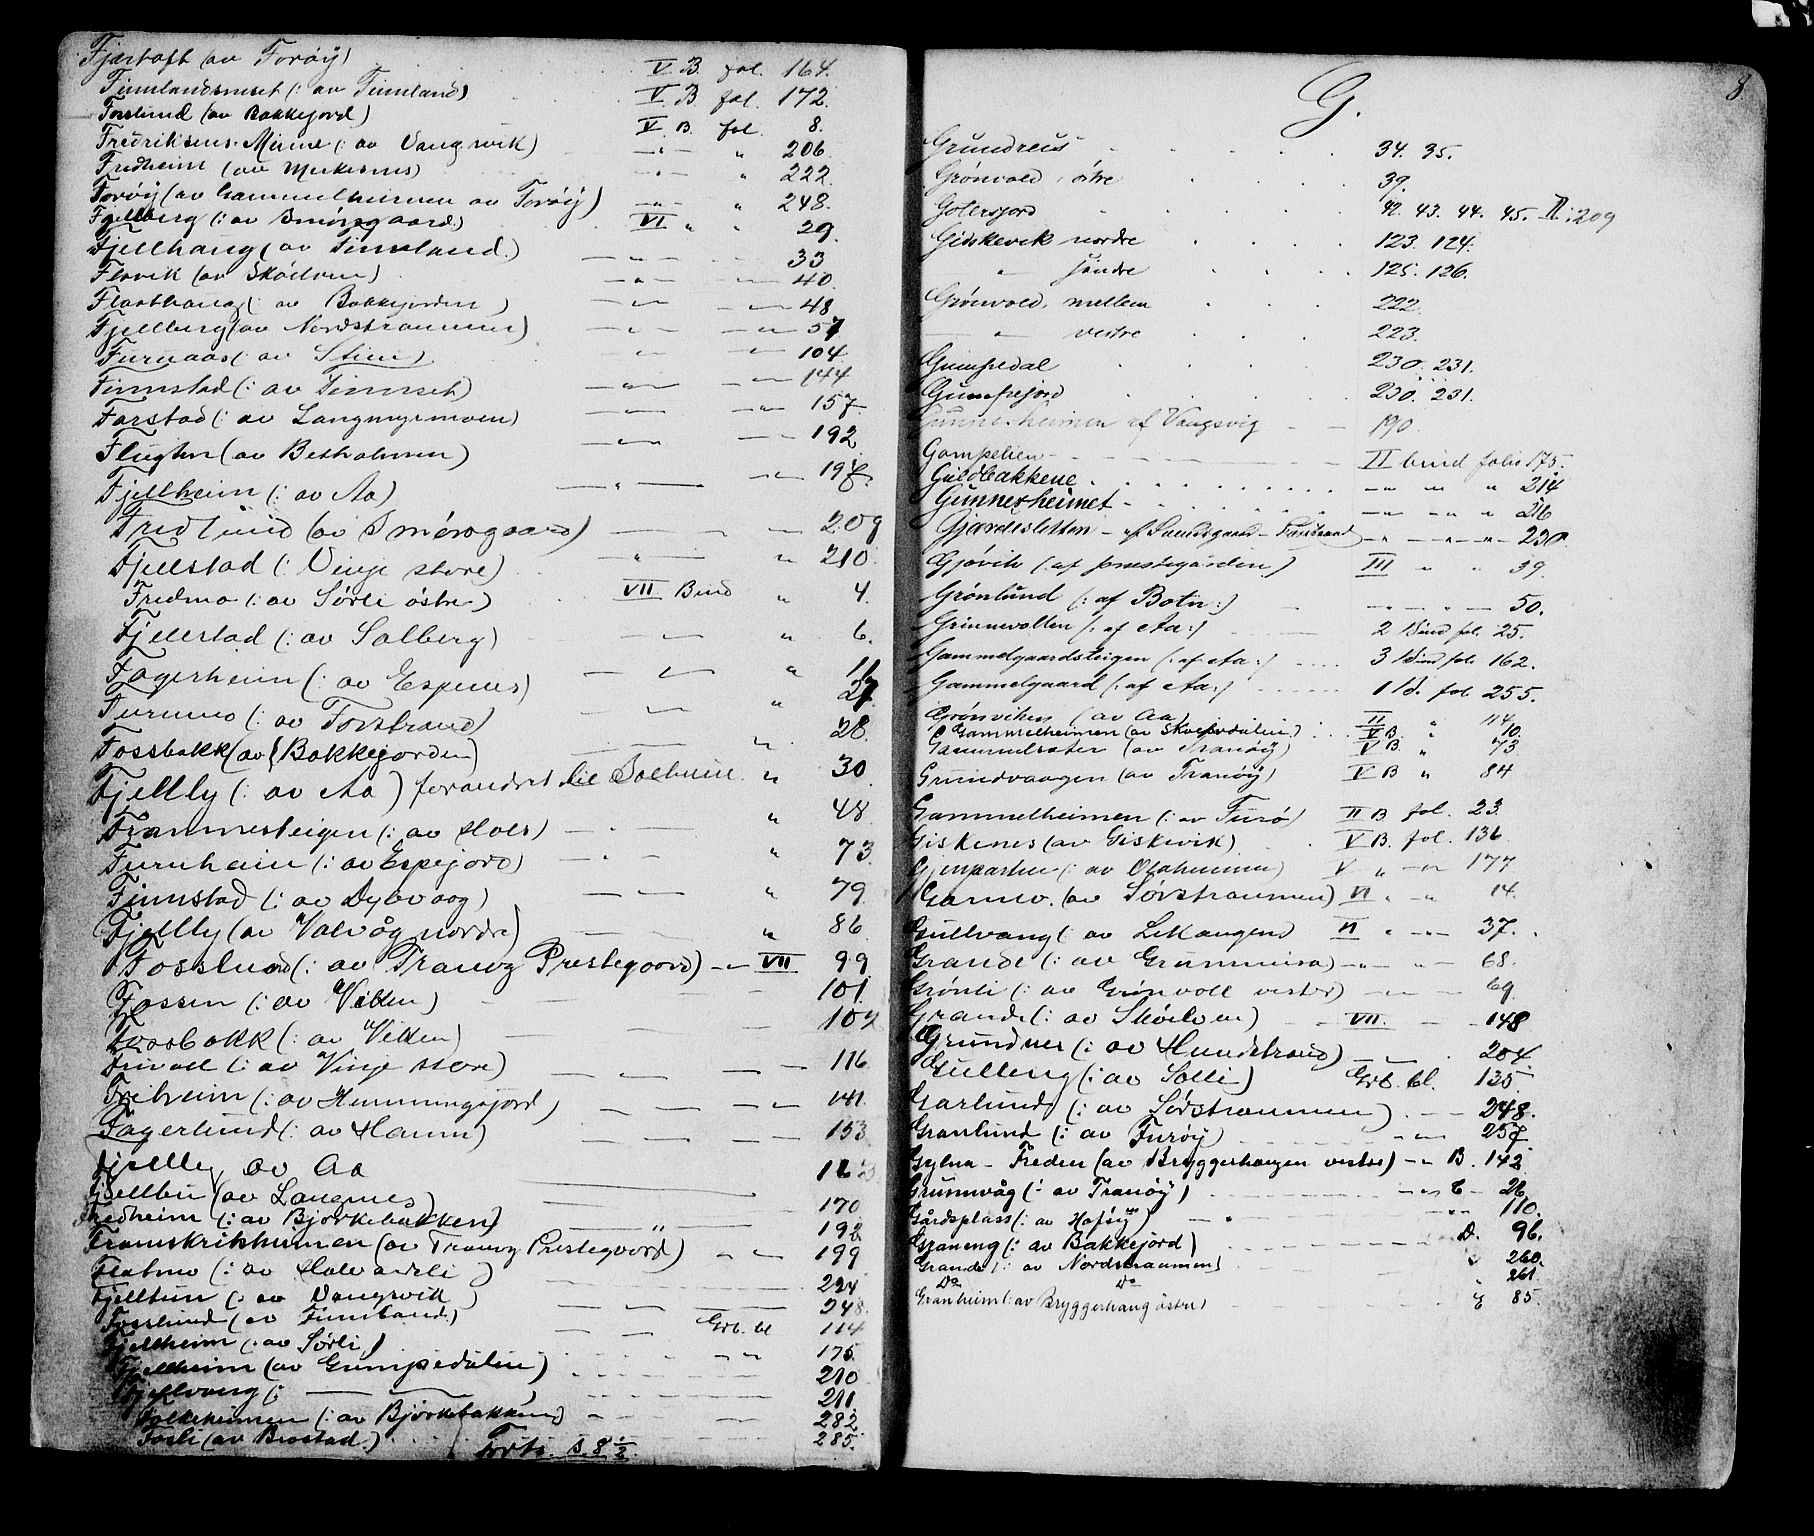 Fjærtoft (av Forøy) V B. fol. 164.
Finnlandsneset (: av Finnland) V. B fol. 172.
Forslund (av Bakkejord) V. B. fol. 8.
Fredriksens-Minne (: av Vangsvik) — " — " 206
Fredheim (av Merkesnes) — " — " 222.
Forøy (av Gammelheimen av Forøy) — " — " 248.
Fjellberg (: av Smörsgaard) VI " " 29.
Fjellhaug (av Finnland.) — " — 33
Flovik (av Sköelven) — " — — " — 40
Flaathaug (: av Bakkejorden) — " — — " — 48
Fjellberg (av Nordstraumen) — " — — " — 57
Furuaas (: av Stien) — " — — " — 104
Finnstad (: av Finnset) — " — — " — 144
Farstad (: av Langmyrmoen) — " — — " — 157
Flugten (av Bethalmen) — " — — " — 192
Fjellheim (: av Aa) — " — — " — 198
Fredlund (av Smörsgaard) — — 209
Fjellstad (: Vinje store) " " 210
Fredmo (: av Sørli östre) VII Bind " 4.
Fjellstad (: av Solberg) — " — " 6.
Fagerheim (: av Espenes) — " — " 11
Furumo (: av Forstrand) — " — " 27
Fossbakk (av Bakkejorden) " 28.
Fjelly (: av Aa) forandret til Solheim " 30
Frammesteigen (: av Hols) — " — " 48
Furuheim (: av Espejord) — " — " 73
Finnstad (: av Dybvaag) — " — " 79
Fjelly (av Valvåg nordre) — " — " 86
Fosslund (: av Tranøy Prestegaard) — " VII 99
Fossen (: av Vikken) — — 101
Fossbakk (: av Vikken) — — 102
Finvoll (: av Vinje store) — — 116
Friheim (: av Hemmingsjord) — " — 141.
Fagerlund (: av Hamn) — — 153
Fjelly av Aa 163
Fjellbu (av Langnes) 170
Fredheim (: av Bjørkebakken) " 192
Framskrikheimen (av Tranøy Prestegaard) — " — 199
Flatmo (: av Halvardli) 224
Fjelltun (: av Vangsvik) 248.
Fosslund (av Finnland.) Grb. bl 114
Fjellheim (: av Sørli) — " — 175.
Fjellheim (av Gumpedalen) — — 210
Fjellvang (: — — ) — — 211
Folkeheimen (: av Bjørkebakken) — — 282
Fosli (av Brostad.) 285.
Forts. s. 8 1/2.
8
G.
Grundreis 34. 35.
Grønvold, östre 39.
Gotersjord 42. 43. 44. 45. II: 209
Gidskevik nordre 123. 124.
" søndre 125. 126.
Grönvold, mellem 222.
" vestre 223.
Gumpedal 230. 231.
Gumpejord 230. 231.
Gunnesheimen af Vangsvig 190.
Gompelien II bind folio 175.
Guldbakkene — " — " 214
Gunnesheimet — " — " 216
Gjærdesletten — af Sandsgaard — Forstrand — " — " 230.
Gjøvik (: af prestegården) III " " 39.
Grønlund (: af Botn :) — " — " 50.
Grinnevollen (: af Aa :) 2 Bind fol. 25.
Gammelgaardsteigen (: af Aa :) 3 Bind fol. 162.
Gammelgaard (: af Aa :) 1 B. fol. 255.
Grønviken (av Aa) II " 114
Gammelheimen (av Skatvedalen) V B. " 10.
Gammelsæter (av Tranøy) V B. " 73
Grundvaagen (av Tranöy) V B " 84
Gammelheimen (: av Furø) II B fol. 23
Giskenes (av Giskevik) V B. fol. 136
Gjenparten (: av Olaheimen) V " — " — 177
Garmo. (av Sörstraumen) VI " — " 14.
Gullvang (: av Lekangen) VI " — " 37.
Grande (: av Grunnreisa) — " — " — 68.
Grönli (: av Grönvoll vestre) — " — 69.
Grande (: av Skøelven) — VII. — — 148
Grundnes (: av Hundstrand) — — 204
Gulleng (: av Solli) Grb. bl. 135
Garlund (: av Sörstraumen) — — 248.
Granlund (: av Furöy) — " — 257
Gylna - Freden (av Bryggerhaugen vestre) — " B. 142
Grunnvåg (: av Tranöy) — " C — 26
Gårdsplass (: av Hofsöy) — " — 110.
Graneng (: av Bakkejord) D. 96.
Grande (: av Nordstraumen) " 260.
Do Do " 261.
Granheim (: av Bryggerhaug östre) E 85.